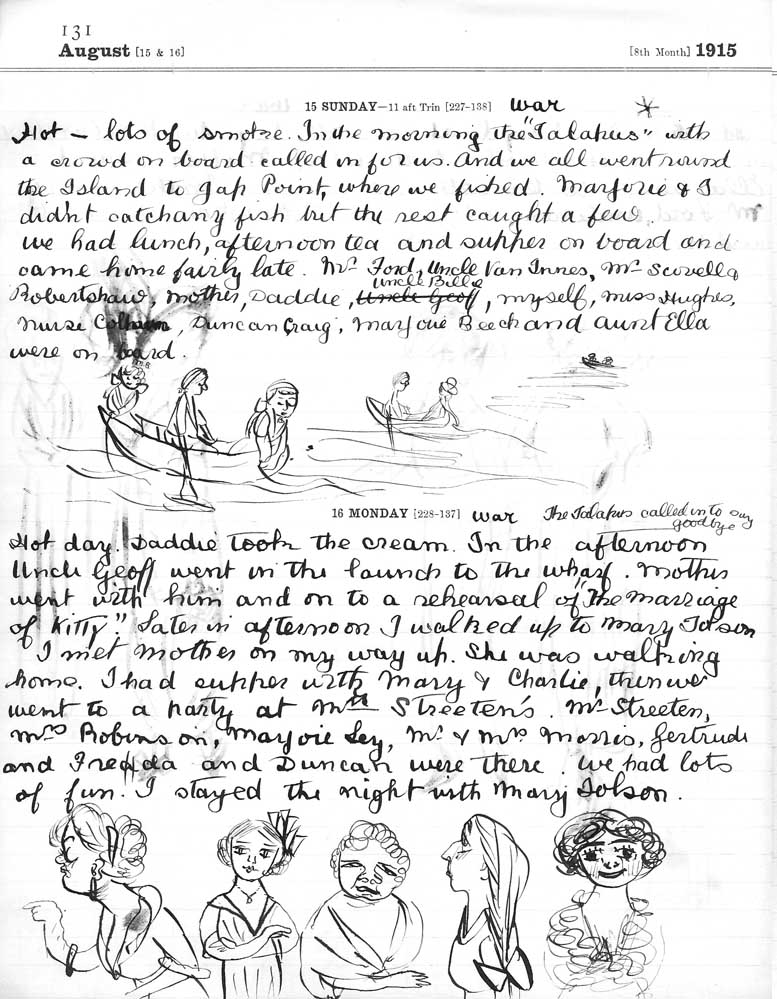 131
August [15 & 16] [8th Month] 1915
15 SUNDAY—11 aft Trin [227-138] war
Hot – lots of smoke. In the morning the "Talapus" with
a crowd on board called in for us. And we all went round
the Island to Gap Point, where we fished. Marjorie & I
didn't catch any fish but the rest caught a few.
we had lunch, afternoon tea and supper on board and
came home fairly late. Mr Ford, Uncle Van Innes, Mr Scovell &
Uncle Bill &
Robertshaw, Mother, Daddie, Uncle Geoff, myself, Miss Hughes,
Nurse, Duncan Craig, Marjorie Beech and Aunt Ella
were on board.
16 MONDAY [228-137] war The Talapus called in to say
goodbye
Hot day. Daddie took the cream. In the afternoon
Uncle Geoff went in the launch to the wharf. Mother
went with him and on to a rehearsal of "The Marriage
of Kitty". Later in afternoon I walked up to Mary Tolson
I met Mother on my way up. She was walking
home. I had supper with Mary & Charlie, then we
went to a party at Mrs Streeten's. Mr Streeten,
Mrs Robinson, Marjorie Ley, Mr & Mrs Morris, Gertrude
and Freda and Duncan were there. We had lots
of fun. I stayed the night with Mary Tolson.